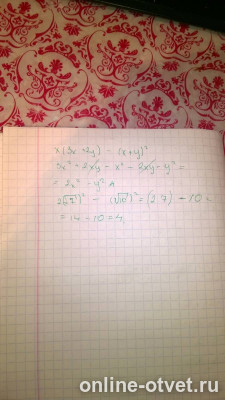 x(3x+2y) - (x+y)²
3x² + 2xy - x² - 2xy - y² =
= 2x² - y²
2(√7)² - (√10)² = (2·7) - 10 =
= 14 - 10 = 4
online-otvet.ru